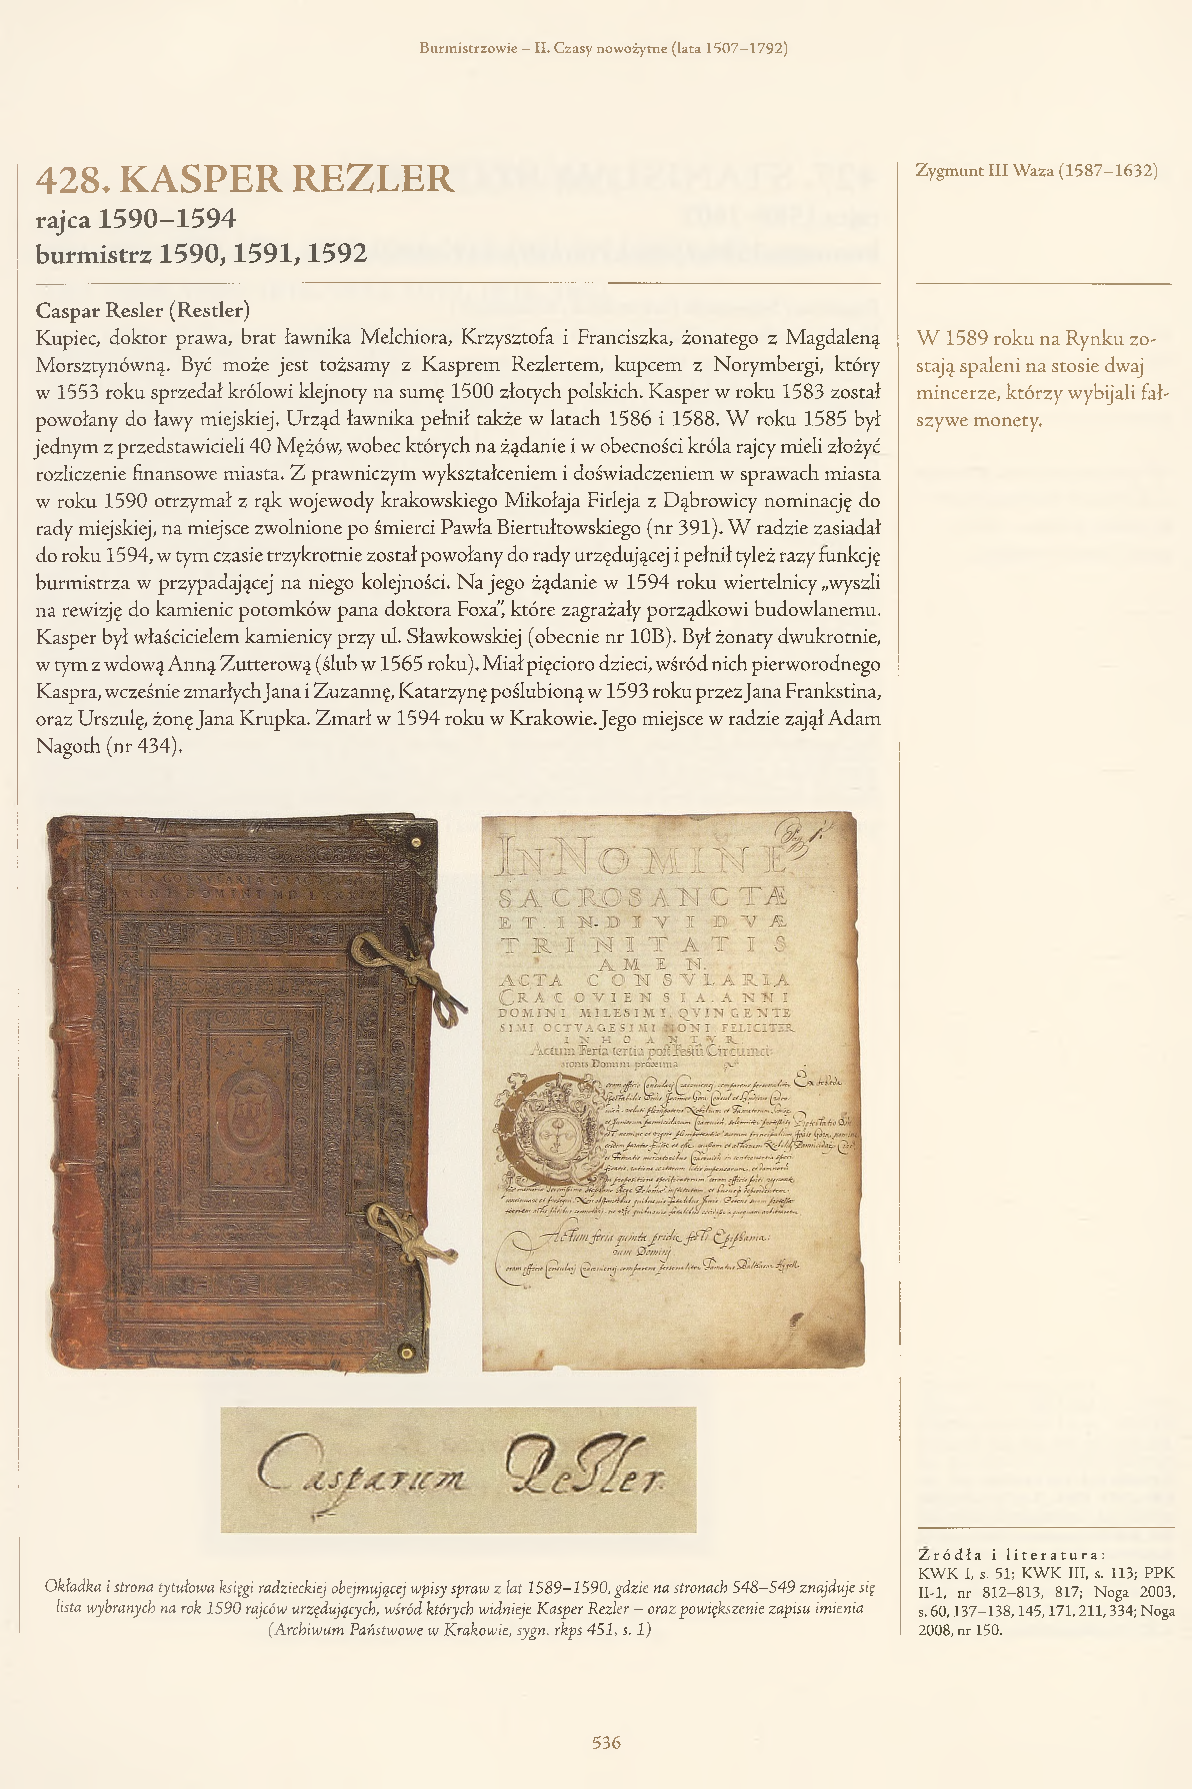 Burmistrzowie – II. Czasy nowożytne (lata 1507–1792)
428. KASPER REZLER
rajca 1590–1594
burmistrz 1590, 1591, 1592
Caspar Resler (Restler)
Kupiec, doktor prawa, brat ławnika Melchiora, Krzysztofa i Franciszka, żonatego z Magdaleną
Morsztynówną. Być może jest tożsamy z Kasprem Rezlertem, kupcem z Norymbergi, który
w 1553 roku sprzedał królowi klejnoty na sumę 1500 złotych polskich. Kasper w roku 1583 został
powołany do ławy miejskiej. Urząd ławnika pełnił także w latach 1586 i 1588. W roku 1585 był
jednym z przedstawicieli 40 Mężów, wobec których na żądanie i w obecności króla rajcy mieli złożyć
rozliczenie finansowe miasta. Z prawniczym wykształceniem i doświadczeniem w sprawach miasta
w roku 1590 otrzymał z rąk wojewody krakowskiego Mikołaja Firleja z Dąbrowicy nominację do
rady miejskiej, na miejsce zwolnione po śmierci Pawła Biertułtowskiego (nr 391). W radzie zasiadał
do roku 1594, w tym czasie trzykrotnie został powołany do rady urzędującej i pełnił tyleż razy funkcję
burmistrza w przypadającej na niego kolejności. Na jego żądanie w 1594 roku wiertelnicy „wyszli
na rewizję do kamienic potomków pana doktora Foxa”, które zagrażały porządkowi budowlanemu.
Kasper był właścicielem kamienicy przy ul. Sławkowskiej (obecnie nr 10B). Był żonaty dwukrotnie,
w tym z wdową Anną Zutterową (ślub w 1565 roku). Miał pięcioro dzieci, wśród nich pierworodnego
Kaspra, wcześnie zmarłych Jana i Zuzannę, Katarzynę poślubioną w 1593 roku przez Jana Frankstina,
oraz Urszulę, żonę Jana Krupka. Zmarł w 1594 roku w Krakowie. Jego miejsce w radzie zajął Adam
Nagoth (nr 434).
Zygmunt III Waza (1587–1632)
W 1589 roku na Rynku zo-
stają spaleni na stosie dwaj
mincerze, którzy wybijali fał-
szywe monety.
IN NOMINE
SACROSANCTÆ
ET INDIVIDVÆ
TRINITATIS
AMEN.
ACTA CONSVLARIA
CRACOVIENSIA ANNI
DOMINI MILESIMI QVINGENTE
SIMI OCTVAGESIMI NONI FELICITER
INHOANTVR
Actum Feria tertia post Festū Circumci
sionis Domini proxima
Actum feria quinta pridie festi Epiphania
rum Domini
Casparum Resler
Okładka i strona tytułowa księgi radzieckiej obejmującej wpisy spraw z lat 1589–1590, gdzie na stronach 548–549 znajduje się
lista wybranych na rok 1590 rajców urzędujących, wśród których widnieje Kasper Rezler – oraz powiększenie zapisu imienia
(Archiwum Państwowe w Krakowie, sygn. rkps 451, s. 1)
Źródła i literatura:
KWK I, s. 51; KWK III, s. 113; PPK
II-1, nr 812–813, 817; Noga 2003,
s. 60, 137–138, 145, 171, 211, 334; Noga
2008, nr 150.
536